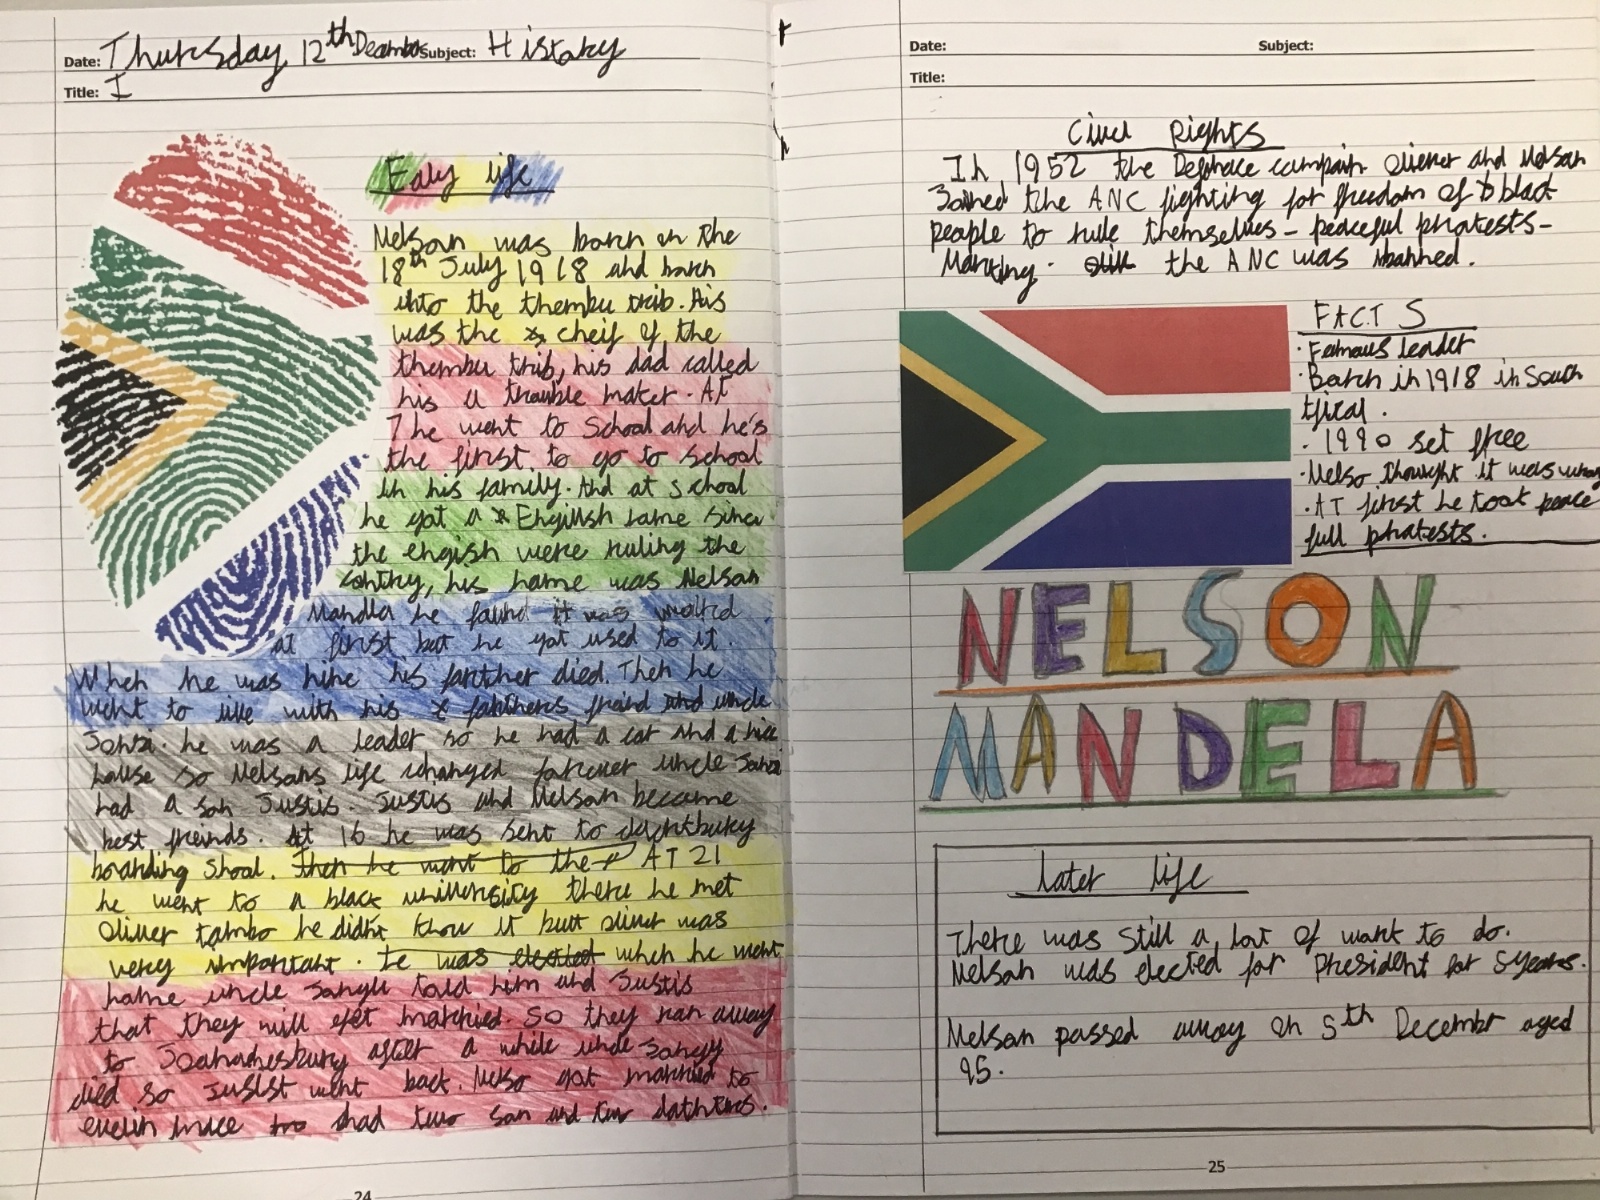 Date: Thursday 12th Decambr Subject: Histaky
Title: I
Ealy life
Nelson was born on the
18th July 1918 and born
into the thembu trib. His
was the cheif of the
thembu trib, his dad called
his a trouble maker. AT
7 he went to School and he's
the first to go to school
in his family. And at school
he got a English name since
the engish were ruling the
contry, his name was Nelson
Mandla he found it was
at first but he got used to it.
When he was nine his farther died. Then he
went to live with his farthers freind and uncle
he was a leader so he had a car and a nice
house so Nelsons life changed forever uncle
had a son Justis. Justis and Nelson became
best freinds. At 16 he was sent to
boarding Shool. Then he went to the AT 21
he went to a black university there he met
Oliver tambo he didn't know it but oliver was
very important. Ie was elected when he went
home uncle Jongu told him and Justis
that they will get married. So they ran away
to after a while uncle
died so went back. Nelso got married to
evelin had two son and two
24
Date: Subject:
Title:
Civel Rights
In 1952 the campain Oliver and Nelson
Joined the ANC fighting for freedom of black
people to rule themselves - peaceful protests -
the ANC was banned.
FACTS
· Famous leader
· Born in 1918 in South
· 1990 set free
· Nelso thought it was
· AT first he took peace
full protests.
NELSON
MANDELA
later life
There was still a lot of work to do.
Nelson was elected for President for 5 years.
Nelson passed away on 5th Decembr aged
95.
25